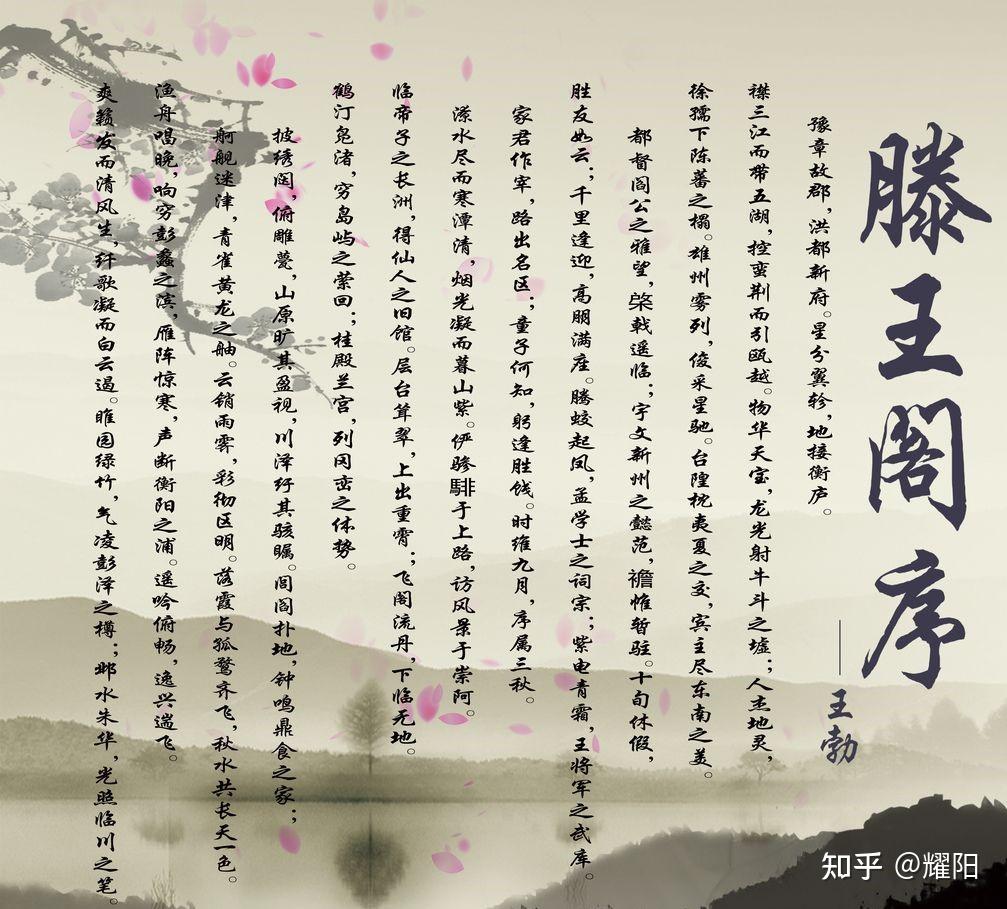 滕王阁序
——王勃
豫章故郡，洪都新府。星分翼轸，地接衡庐。
襟三江而带五湖，控蛮荆而引瓯越。物华天宝，龙光射牛斗之墟；人杰地灵，
徐孺下陈蕃之榻。雄州雾列，俊采星驰。台隍枕夷夏之交，宾主尽东南之美。
都督阎公之雅望，棨戟遥临；宇文新州之懿范，襜帷暂驻。十旬休假，
胜友如云；千里逢迎，高朋满座。腾蛟起凤，孟学士之词宗；紫电青霜，王将军之武库。
家君作宰，路出名区；童子何知，躬逢胜饯。时维九月，序属三秋。
潦水尽而寒潭清，烟光凝而暮山紫。俨骖騑于上路，访风景于崇阿。
临帝子之长洲，得仙人之旧馆。层台耸翠，上出重霄；飞阁流丹，下临无地。
鹤汀凫渚，穷岛屿之萦回；桂殿兰宫，列冈峦之体势。
披绣闼，俯雕甍，山原旷其盈视，川泽纡其骇瞩。闾阎扑地，钟鸣鼎食之家；
舸舰迷津，青雀黄龙之舳。云销雨霁，彩彻区明。落霞与孤鹜齐飞，秋水共长天一色。
渔舟唱晚，响穷彭蠡之滨，雁阵惊寒，声断衡阳之浦。遥吟俯畅，逸兴遄飞。
爽籁发而清风生，纤歌凝而白云遏。睢园绿竹，气凌彭泽之樽；邺水朱华，光照临川之笔。
知乎 @耀阳